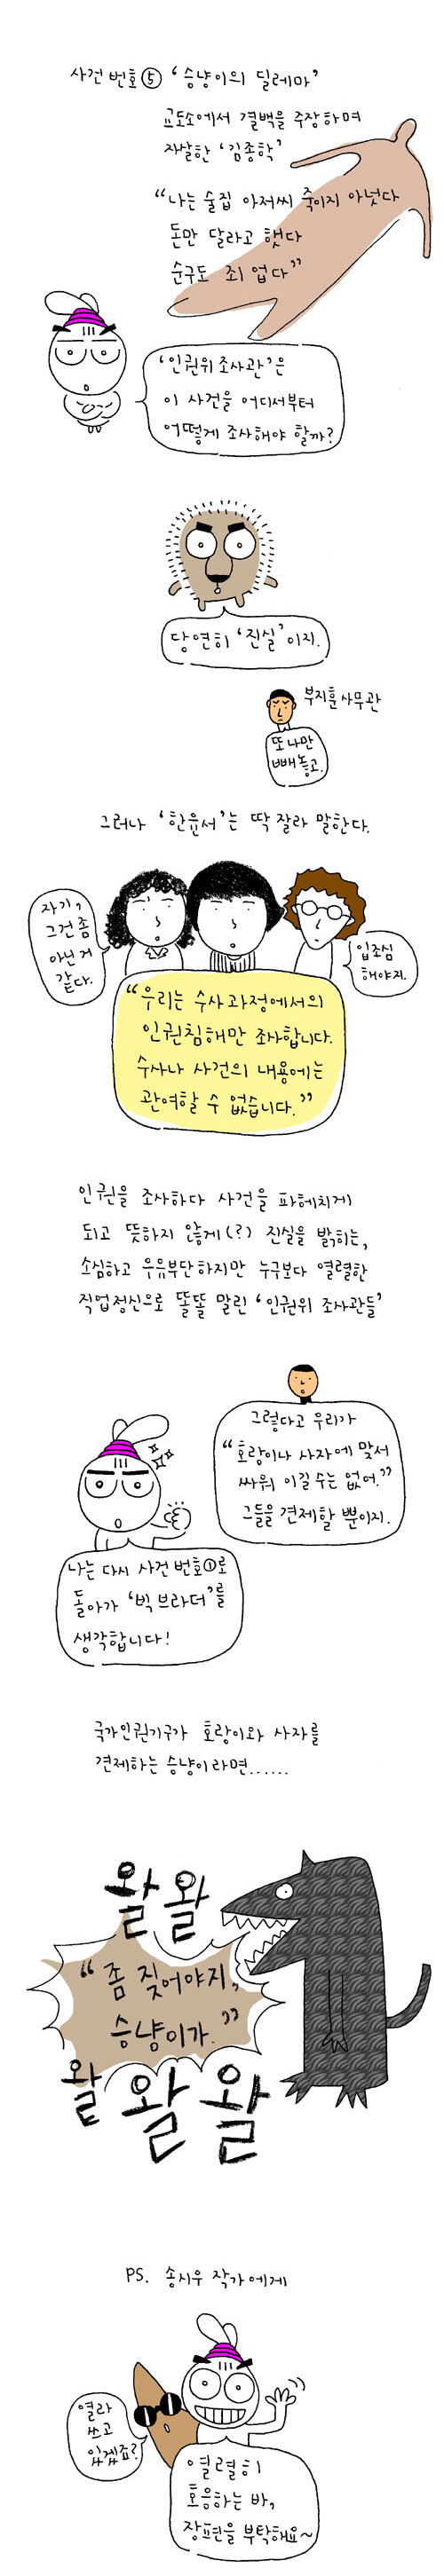 사건 번호⑤ ‘승냥이의 딜레마’
교도소에서 결백을 주장하며
자살한 ‘김종학’
“나는 술집 아저씨 죽이지 아넛다
돈만 달라고 햇다
순구도 죄 업다”
‘인권위 조사관’은
이 사건을 어디서부터
어떻게 조사해야 할까?
당연히 ‘진실’이지.
부지훈 사무관
또 나만
빼놓고.
그러나 ‘한윤서’는 딱 잘라 말한다.
자기,
그건 좀
아닌 거
같다.
입조심
해야지.
“우리는 수사과정에서의
인권침해만 조사합니다.
수사나 사건의 내용에는
관여할 수 없습니다.”
인권을 조사하다 사건을 파헤치게
되고 뜻하지 않게(?) 진실을 밝히는,
소심하고 우유부단하지만 누구보다 열렬한
직업정신으로 똘똘 말린 ‘인권위 조사관들’
그렇다고 우리가
“호랑이나 사자에 맞서
싸워 이길 수는 없어.”
그들을 견제할 뿐이지.
나는 다시 사건 번호①로
돌아가 ‘빅 브라더’를
생각합니다!
국가인권기구가 호랑이와 사자를
견제하는 승냥이라면......
왈 왈
“좀 짖어야지,
승냥이가.”
왈 왈 왈
PS. 송시우 작가에게
열라
쓰고
있겠죠?
열렬히
호응하는 바,
장편을 부탁해요~